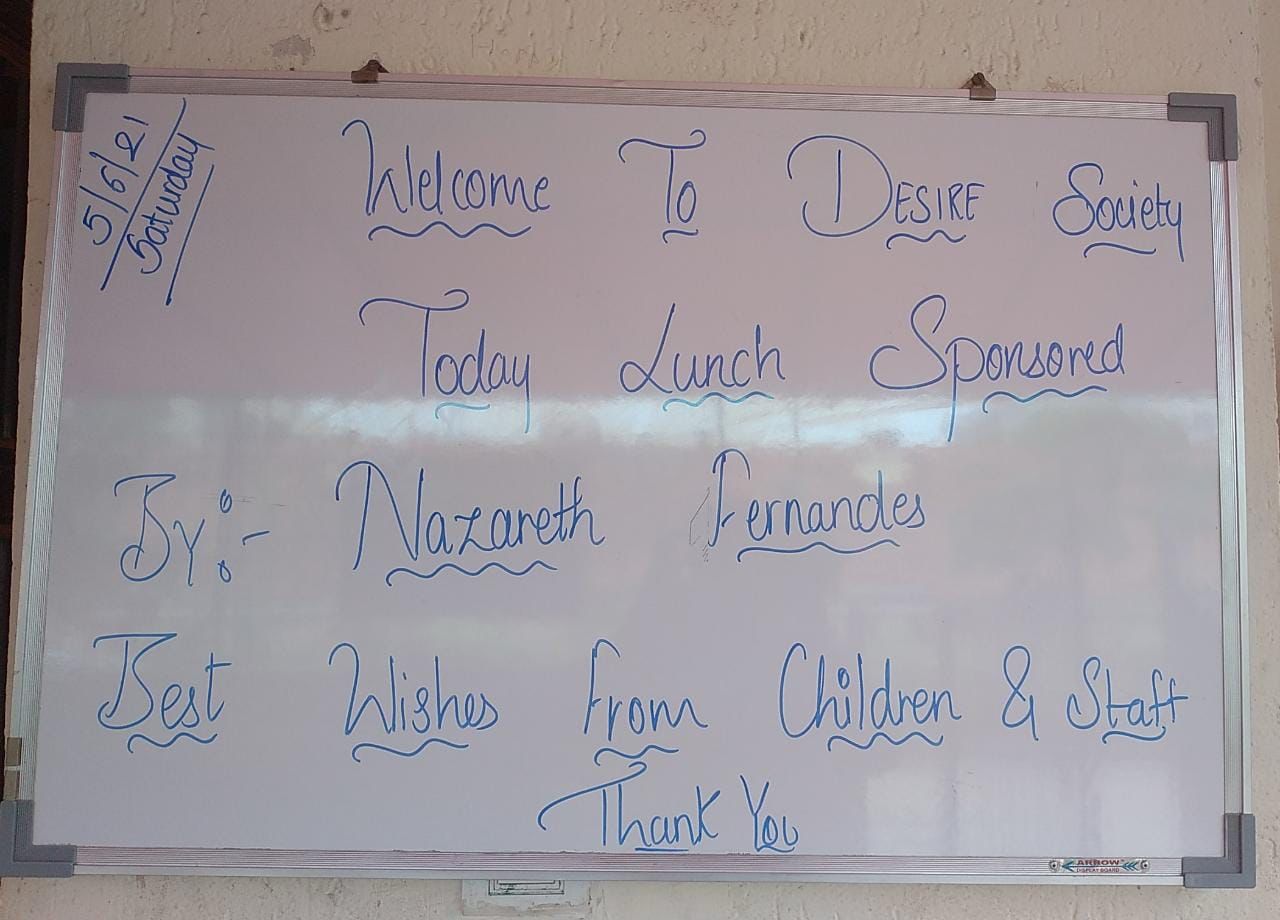 5/6/21
Saturday
Welcome To DESIRE Society
Today Lunch Sponsored
By :- Nazareth Fernandes
Best Wishes From Children & Staff
Thank You
ARROW
DISPLAY BOARD